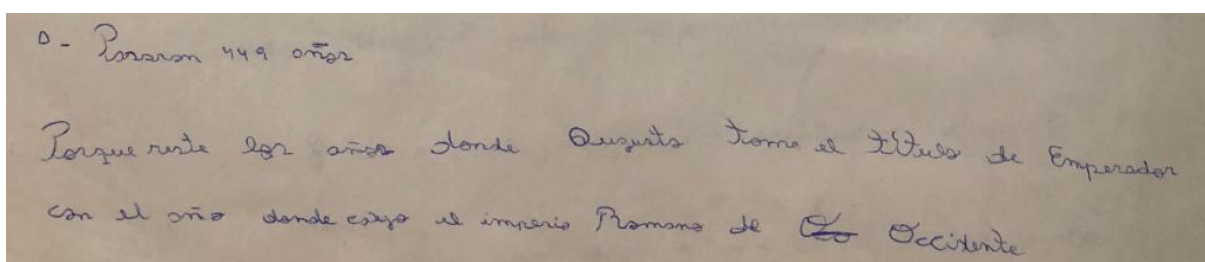 D- Pasaron 449 años
Porque reste los años donde Augusto Tomo el título de Emperador
con el año donde cayo el imperio Romano de Occidente